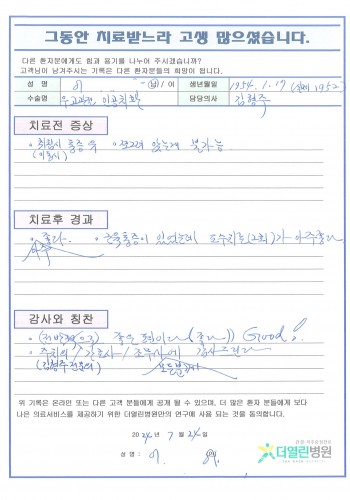 그동안 치료받느라 고생 많으셨습니다.
다른 환자분에게도 힘과 용기를 나누어 주시겠습니까?
고객님이 남겨주시는 기록은 다른 환자분들의 희망이 됩니다.
성 명 이 (남) / 여 생년월일 1954. 1. 17 (실제 1952)
수술명 우고관절 인공치환 담당의사 김형주
치료전 증상
· 취침시 통증 쪼그려 앉는게 불가능
치료후 경과
· 좋다. · 근육통증이 있었는데 도수치료(2회)가 아주좋다
아주
감사와 칭찬
좋은 (좋다) Good!
· 주치의 / 간호사 / 조무사에 감사드린다
모든분께
위 기록은 온라인 또는 다른 고객 분들에게 공개 될 수 있으며, 더 많은 환자 분들에게 보다
나은 의료서비스를 제공하기 위한 더열린병원만의 연구에 사용 되는 것을 동의합니다.
2024년 7월 24일
성 명 : 이
더열린병원